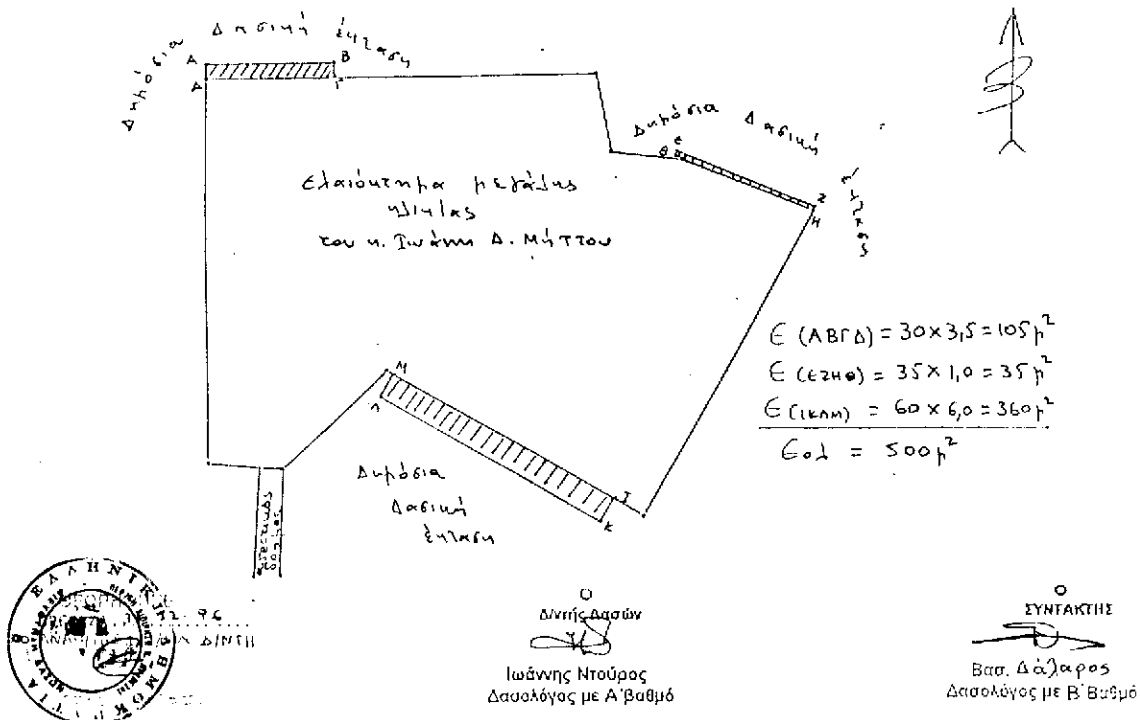 Δημόσια Δασική έκταση
Α
Β
Δ
Γ
Δημόσια Δασική
έκταση
Θ
Ε
Ζ
Η
Ελαιόκτημα μεγάλης
ηλικίας
του κ. Ιωάννη Δ. Μήττου
Ε (ΑΒΓΔ) = 30 × 3,5 = 105 μ²
Ε (ΕΖΗΘ) = 35 × 1,0 = 35 μ²
Ε (ΙΚΛΜ) = 60 × 6,0 = 360 μ²
Εολ = 500 μ²
Μ
Λ
Ι
Κ
Δημόσια
Δασική
έκταση
δρόμος
ΕΛΛΗΝΙΚΗ ΔΗΜΟΚΡΑΤΙΑ
Ο
Δ/ντής Δασών
Ιωάννης Ντούρος
Δασολόγος με Α΄βαθμό
Ο
ΣΥΝΤΑΚΤΗΣ
Βασ. Δάλαρος
Δασολόγος με Β΄ Βαθμό